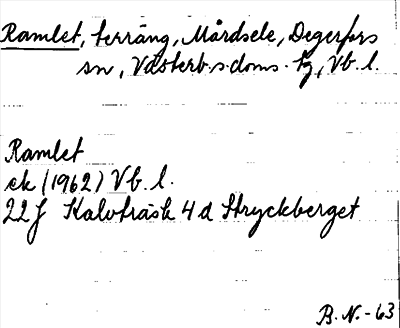 Ramlet, terräng, Mårdsele, Degerfors
sn, Västerb. s. doms. tg, Vb. l.
Ramlet
ek (1962) Vb. l.
22 J Kalvträsk 4 d Stryckberget
B. N. - 63